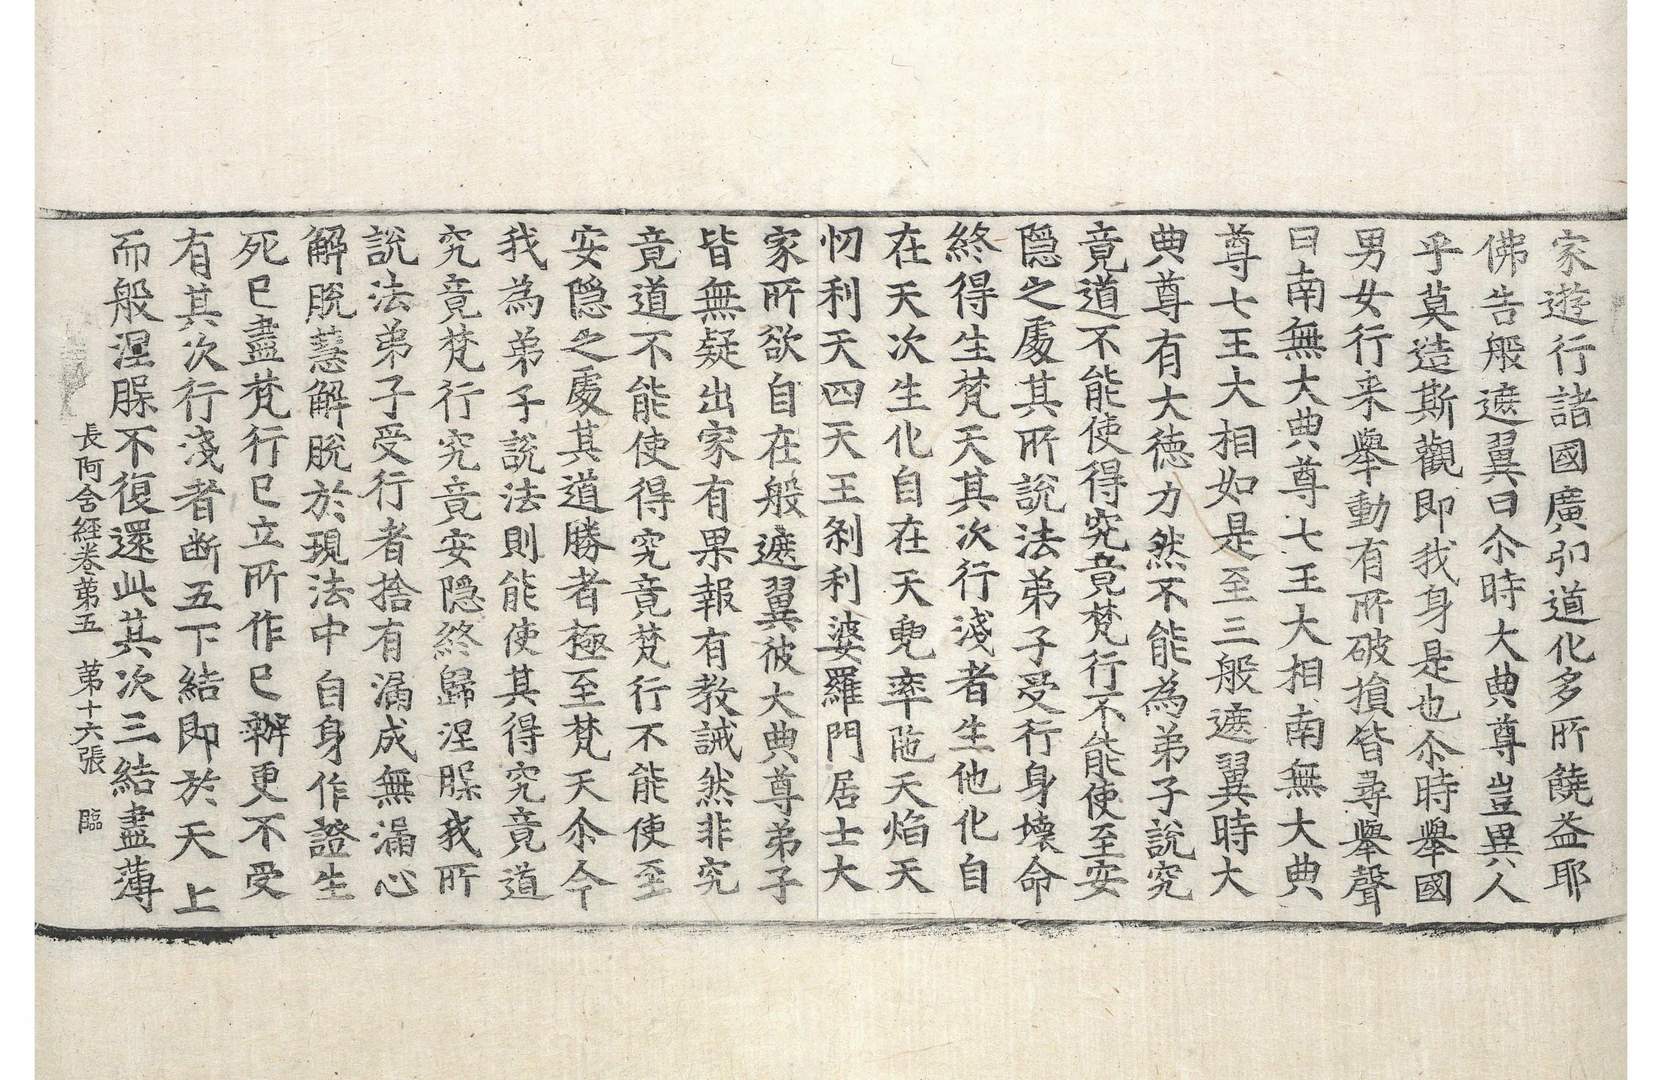 家遊行諸國廣弘道化多所饒益耶
佛告般遮翼曰尒時大典尊豈異人
乎莫造斯觀即我身是也尒時舉國
男女行来舉動有所破損皆尋舉聲
曰南無大典尊七王大相南無大典
尊七王大相如是至三般遮翼時大
典尊有大徳力然不能為弟子說究
竟道不能使得究竟梵行不能使至安
隠之處其所說法弟子受行身壊命
終得生梵天其次行淺者生他化自
在天次生化自在天兜率陁天焰天
忉利天四天王刹利婆羅門居士大
家所欲自在般遮翼彼大典尊弟子
皆無疑出家有果報有教誡然非究
竟道不能使得究竟梵行不能使至
安隠之處其道勝者極至梵天尒今
我為弟子說法則能使其得究竟道
究竟梵行究竟安隠終歸涅槃我所
說法弟子受行者捨有漏成無漏心
解脫慧解脫於現法中自身作證生
死已盡梵行已立所作已辦更不受
有其次行淺者断五下結即於天上
而般涅槃不復還此其次三結盡薄
長阿含經卷第五　第十六張　臨